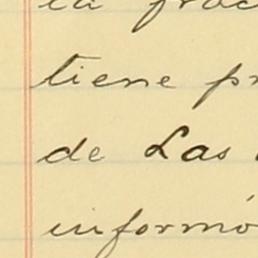 la proc
tiene pr
de Las
informó